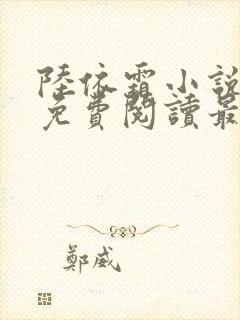 陸依霜小說
免費閱讀最
鄭威